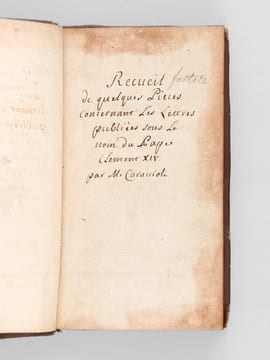 Recueil
de quelques Pieces
Concernant Les Lettres
publiées sous Le
nom du Pape
Clement XIV.
par M. Caraccioli